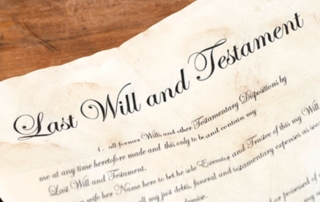 Last Will and Testament
I, all former Wills and other Testamentary Dispositions by
me at any time heretofore made and this only to be and contain my
Last Will and Testament.
wife her Name here to let be sole Executor and Trustee of this my Will
all my just debts, funeral and testamentary expenses as soon